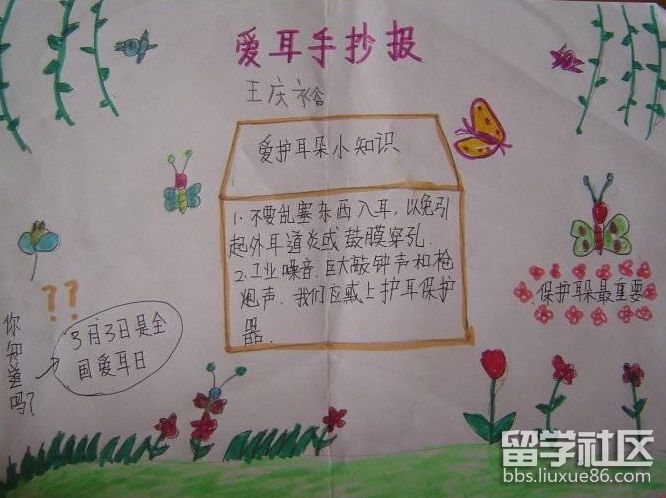 爱耳手抄报
王庆裕
爱护耳朵小知识
1、不要乱塞东西入耳，以免引
起外耳道炎或鼓膜穿孔.
2.工业噪音.巨大敲钟声和枪
炮声.我们应戴上护耳保护
器.
保护耳朵最重要
??
你知道吗？
3月3日是全
国爱耳日
留学社区
bbs.liuxue86.com